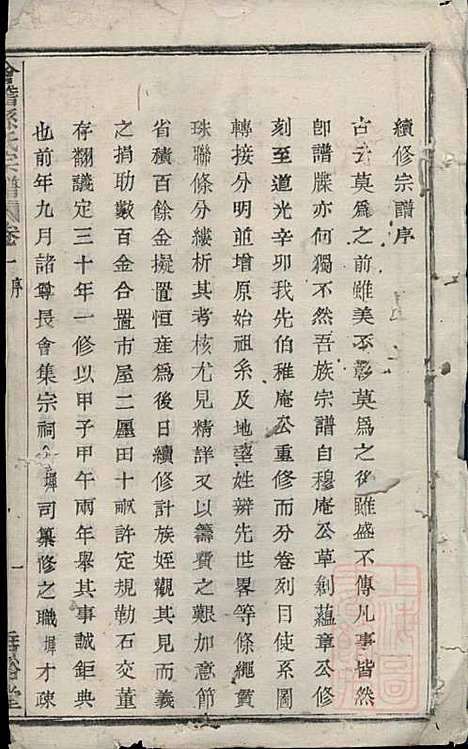 續修宗譜序
古云莫爲之前雖美不彰莫爲之後雖盛不傳凡事皆然
卽譜牒亦何獨不然吾族宗譜自穆庵公草剏蘊章公修
刻至道光辛卯我先伯稚庵公重修而分卷列目使系圖
轉接分明並增原始祖系及地望姓辨先世畧等條繩貫
珠聯條分縷析其考核尤見精詳又以籌費之艱加意節
省積百餘金擬置恒産爲後日續修計族姪觀其而義
之捐助數百金合置市屋二廛田十畝許定規勒石交董
存翻議定三十年一修以甲子甲午兩年舉其事誠鉅典
也前年九月諸尊長會集宗祠命墀司纂修之職墀才疎
會稽孫氏宗譜 卷一 序 一